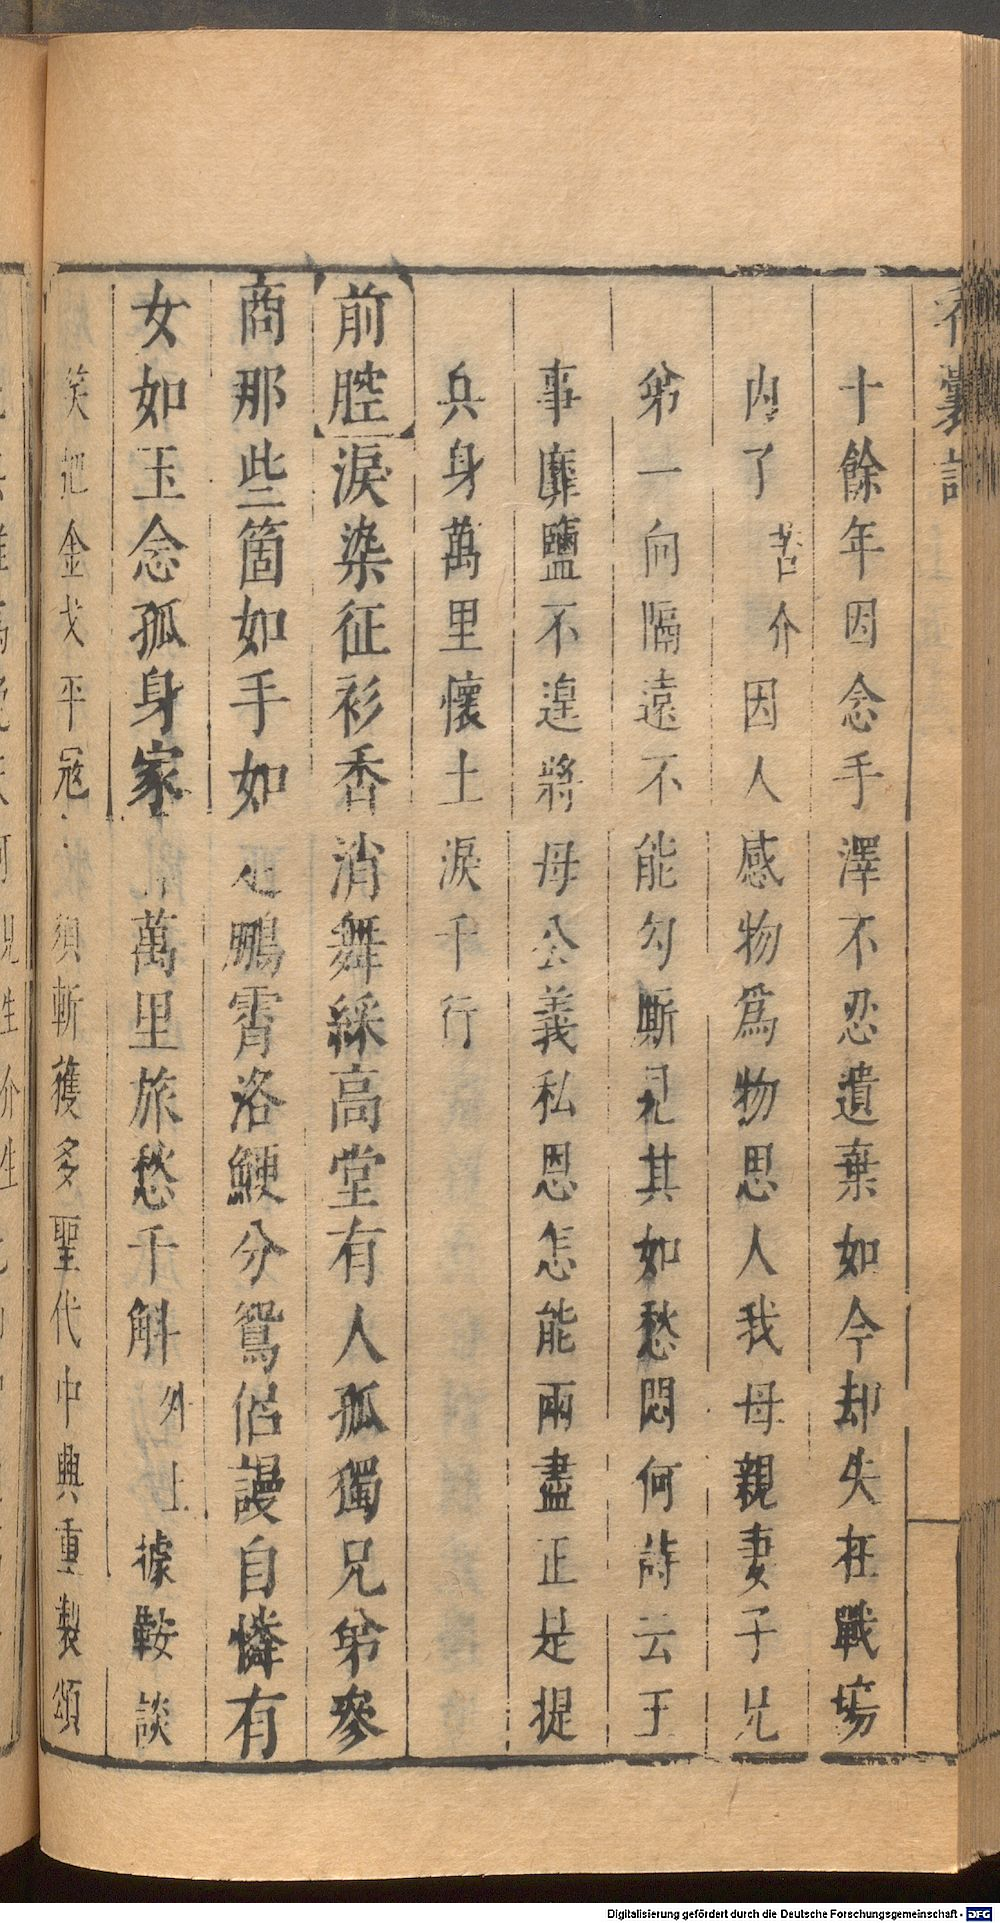 香囊記
十餘年因念手澤不忍遺棄如今却失在戰場
内了苦介因人感物爲物思人我母親妻子兄
弟一向隔遠不能勾厮見其如愁悶何詩云王
事靡鹽不遑將母公義私恩怎能兩盡正是提
兵身萬里懷土淚千行
前腔淚染征衫香消舞綵高堂有人孤獨兄弟參
商那些箇如手如足鵬霄洛鯁分鴛侶謾自憐有
女如玉念孤身家萬里旅愁千斛外上據鞍談
笑把金戈平冦須斬獲多聖代中興重製頌
Digitalisierung gefördert durch die Deutsche Forschungsgemeinschaft - DFG